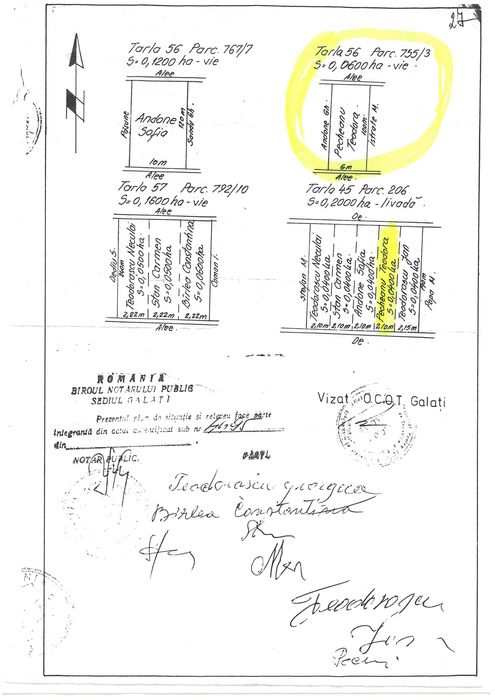 27
Tarla 56 Parc. 767/7
S=0,1200 ha-vie
Alee
Pășune
Andone
Sofia
120m
Sandu Gh.
10m
Alee
Tarla 56 Parc. 755/3
S=0,0600 ha-vie
Alee
Andone Gh.
Pecheanu
Teodora
100m
Istrate M.
6m
Alee
Tarla 57 Parc. 792/10
S=0,1600 ha-vie
Alee
Teodorascu Neculai
S=0,0500ha
Stan Carmen
S=0,0500ha
Bîrlea Constantina
S=0,0600ha
Coman I.
2,22m 2,22m 2,22m
Alee
Tarla 45 Parc. 206
S=0,2000 ha-livadă
De
Stefan M.
Teodorascu Neculai
S=0,0400 ha.
Stan Carmen
S=0,0400 ha.
Andone Sofia
S=0,0400 ha.
Pecheanu Teodora
S=0,0400 ha.
Teodorascu Jan
S=0,0400 ha.
Popa M.
2,10m 2,10m 2,10m 2,10m 2,15m
De
ROMANIA
BIROUL NOTARULUI PUBLIC
SEDIUL GALATI
Prezentul plan de situație și releveu face parte
integrantă din actul autentificat sub nr
din
NOTAR PUBLIC,
Vizat O.C.O.T. Galați
Teodorascu
Bîrlea Constantina
Teodorascu